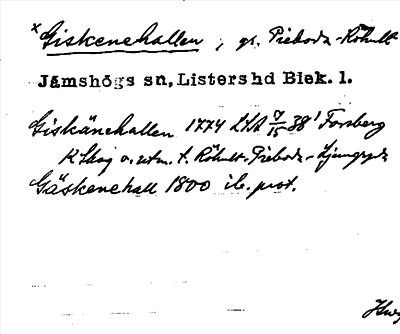 x Giskenehallen, gr. Pieboda-Röhult
Jämshögs sn, Listers hd Blek. l.
Giskänehallen 1774 LSA 7/15 38' Forsberg
K Skog o. utm. t. Röhult, Pieboda, Ljungryda
Gäskenehall 1800 ib. prot.